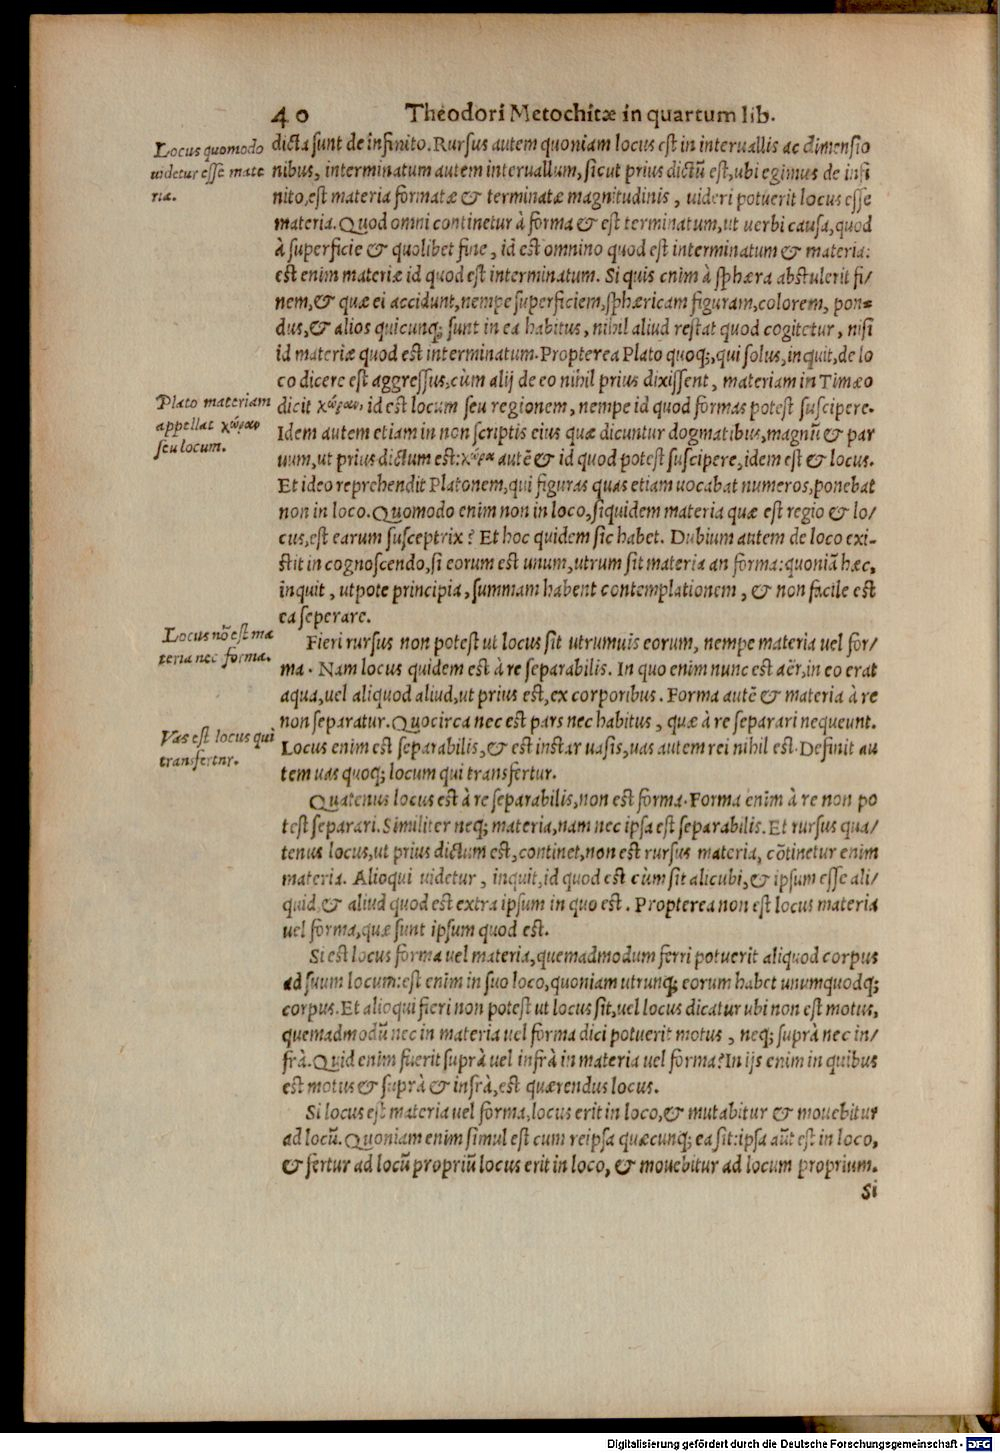 40 Theodori Metochitæ in quartum lib.
Locus quomodo
uidetur esse mate
ria.
dicta sunt de infinito. Rursus autem quoniam locus est in interuallis ac dimensio
nibus, interminatum autem interuallum, sicut prius dictũ est, ubi egimus de infi
nito, est materia formatæ & terminatæ magnitudinis, uideri potuerit locus esse
materia. Quod omni continetur à forma & est terminatum, ut uerbi causa, quod
à superficie & quolibet fine, id est omnino quod est interminatum & materia:
est enim materiæ id quod est interminatum. Si quis enim à sphæra abstulerit fi/
nem, & quæ ei accidunt, nempe superficiem, sphæricam figuram, colorem, pon=
dus, & alios quicunq; sunt in ea habitus, nihil aliud restat quod cogitetur, nisi
id materiæ quod est interminatum. Propterea Plato quoq;, qui solus, inquit, de lo
co dicere est aggressus, cùm alij de eo nihil prius dixissent, materiam in Timæo
Plato materiam
appellat χώραν
seu locum.
dicit χώραν, id est locum seu regionem, nempe id quod formas potest suscipere.
Idem autem etiam in non scriptis eius quæ dicuntur dogmatibus, magnũ & par
uum, ut prius dictum est: χώρα autẽ & id quod potest suscipere, idem est & locus.
Et ideo reprehendit Platonem, qui figuras quas etiam uocabat numeros, ponebat
non in loco. Quomodo enim non in loco, siquidem materia quæ est regio & lo/
cus, est earum susceptrix? Et hoc quidem sic habet. Dubium autem de loco exi-
stit in cognoscendo, si eorum est unum, utrum sit materia an forma: quoniã hæc,
inquit, utpote principia, summam habent contemplationem, & non facile est
ea seperare.
Locus nõ est ma
teria nec forma.
Fieri rursus non potest ut locus sit utrumuis eorum, nempe materia uel for/
ma. Nam locus quidem est à re separabilis. In quo enim nunc est aër, in eo erat
aqua, uel aliquod aliud, ut prius est, ex corporibus. Forma autẽ & materia à re
non separatur. Quocirca nec est pars nec habitus, quæ à re separari nequeunt.
Vas est locus qui
transfertur.
Locus enim est separabilis, & est instar uasis, uas autem rei nihil est. Definit au
tem uas quoq; locum qui transfertur.
Quatenus locus est à re separabilis, non est forma. Forma enim à re non po
test separari. Similiter neq; materia, nam nec ipsa est separabilis. Et rursus qua/
tenus locus, ut prius dictum est, continet, non est rursus materia, cõtinetur enim
materia. Alioqui uidetur, inquit, id quod est cùm sit alicubi, & ipsum esse ali/
quid, & aliud quod est extra ipsum in quo est. Propterea non est locus materia
uel forma, quæ sunt ipsum quod est.
Si est locus forma uel materia, quemadmodum ferri potuerit aliquod corpus
ad suum locum: est enim in suo loco, quoniam utrunq; eorum habet unumquodq;
corpus. Et alioqui fieri non potest ut locus sit, uel locus dicatur ubi non est motus,
quemadmodũ nec in materia uel forma dici potuerit motus, neq; suprà nec in/
frà. Quid enim fuerit suprà uel infrà in materia uel forma? In ijs enim in quibus
est motus & suprà & infrà, est quærendus locus.
Si locus est materia uel forma, locus erit in loco, & mutabitur & mouebitur
ad locũ. Quoniam enim simul est cum reipsa quæcunq; ea sit: ipsa aũt est in loco,
& fertur ad locũ propriũ locus erit in loco, & mouebitur ad locum proprium.
Si
Digitalisierung gefördert durch die Deutsche Forschungsgemeinschaft - DFG